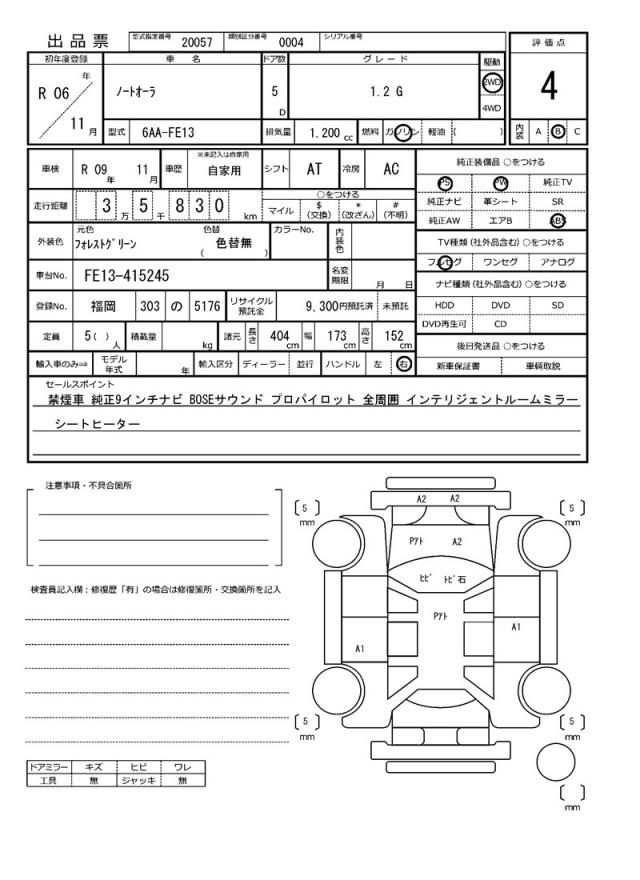 出品票
型式指定番号 20057 類別区分番号 0004 シリアル番号
初年度登録 車名 ドア数 グレード 駆動 評価点
R 06 年 11 月
ノートオーラ 5 D 1.2 G 2WD 4WD
4
型式 6AA-FE13 排気量 1.200 cc 燃料 ガソリン 軽油 ( )
内装 A B C
車検 R 09 年 11 月 車歴 ※未記入は自家用 自家用 シフト AT 冷房 AC
走行距離 3 万 5 千 8 3 0 km
○をつける
マイル $ (交換) * (改ざん) # (不明)
外装色 元色 フォレストグリーン 色替 ( 色替無 ) カラーNo. 内装色
車台No. FE13-415245 名変期限 月 日
登録No. 福岡 303 の 5176 リサイクル預託金 9,300円預託済 未預託
定員 5 ( ) 人 積載量 kg 諸元 長さ 404 cm 幅 173 cm 高さ 152 cm
輸入車のみ⇒ モデル年式 年 輸入区分 ディーラー 並行 ハンドル 左 右
純正装備品 ○をつける
PS PW 純正TV
純正ナビ 革シート SR
純正AW エアB ABS
TV種類 (社外品含む) ○をつける
フルセグ ワンセグ アナログ
ナビ種類 (社外品含む) ○をつける
HDD DVD SD
DVD再生可 CD
後日発送品 ○をつける
新車保証書 車輌取説
セールスポイント
禁煙車 純正9インチナビ BOSEサウンド プロパイロット 全周囲 インテリジェントルームミラー
シートヒーター
注意事項・不具合箇所
検査員記入欄：修復歴「有」の場合は修復箇所・交換箇所を記入
ドアミラー キズ ヒビ ワレ
工具 無 ジャッキ 無
5 mm
A2 A2
5 mm
Pアト A2
ヒビ トビ石
Pアト
A1
A1
5 mm
5 mm
mm